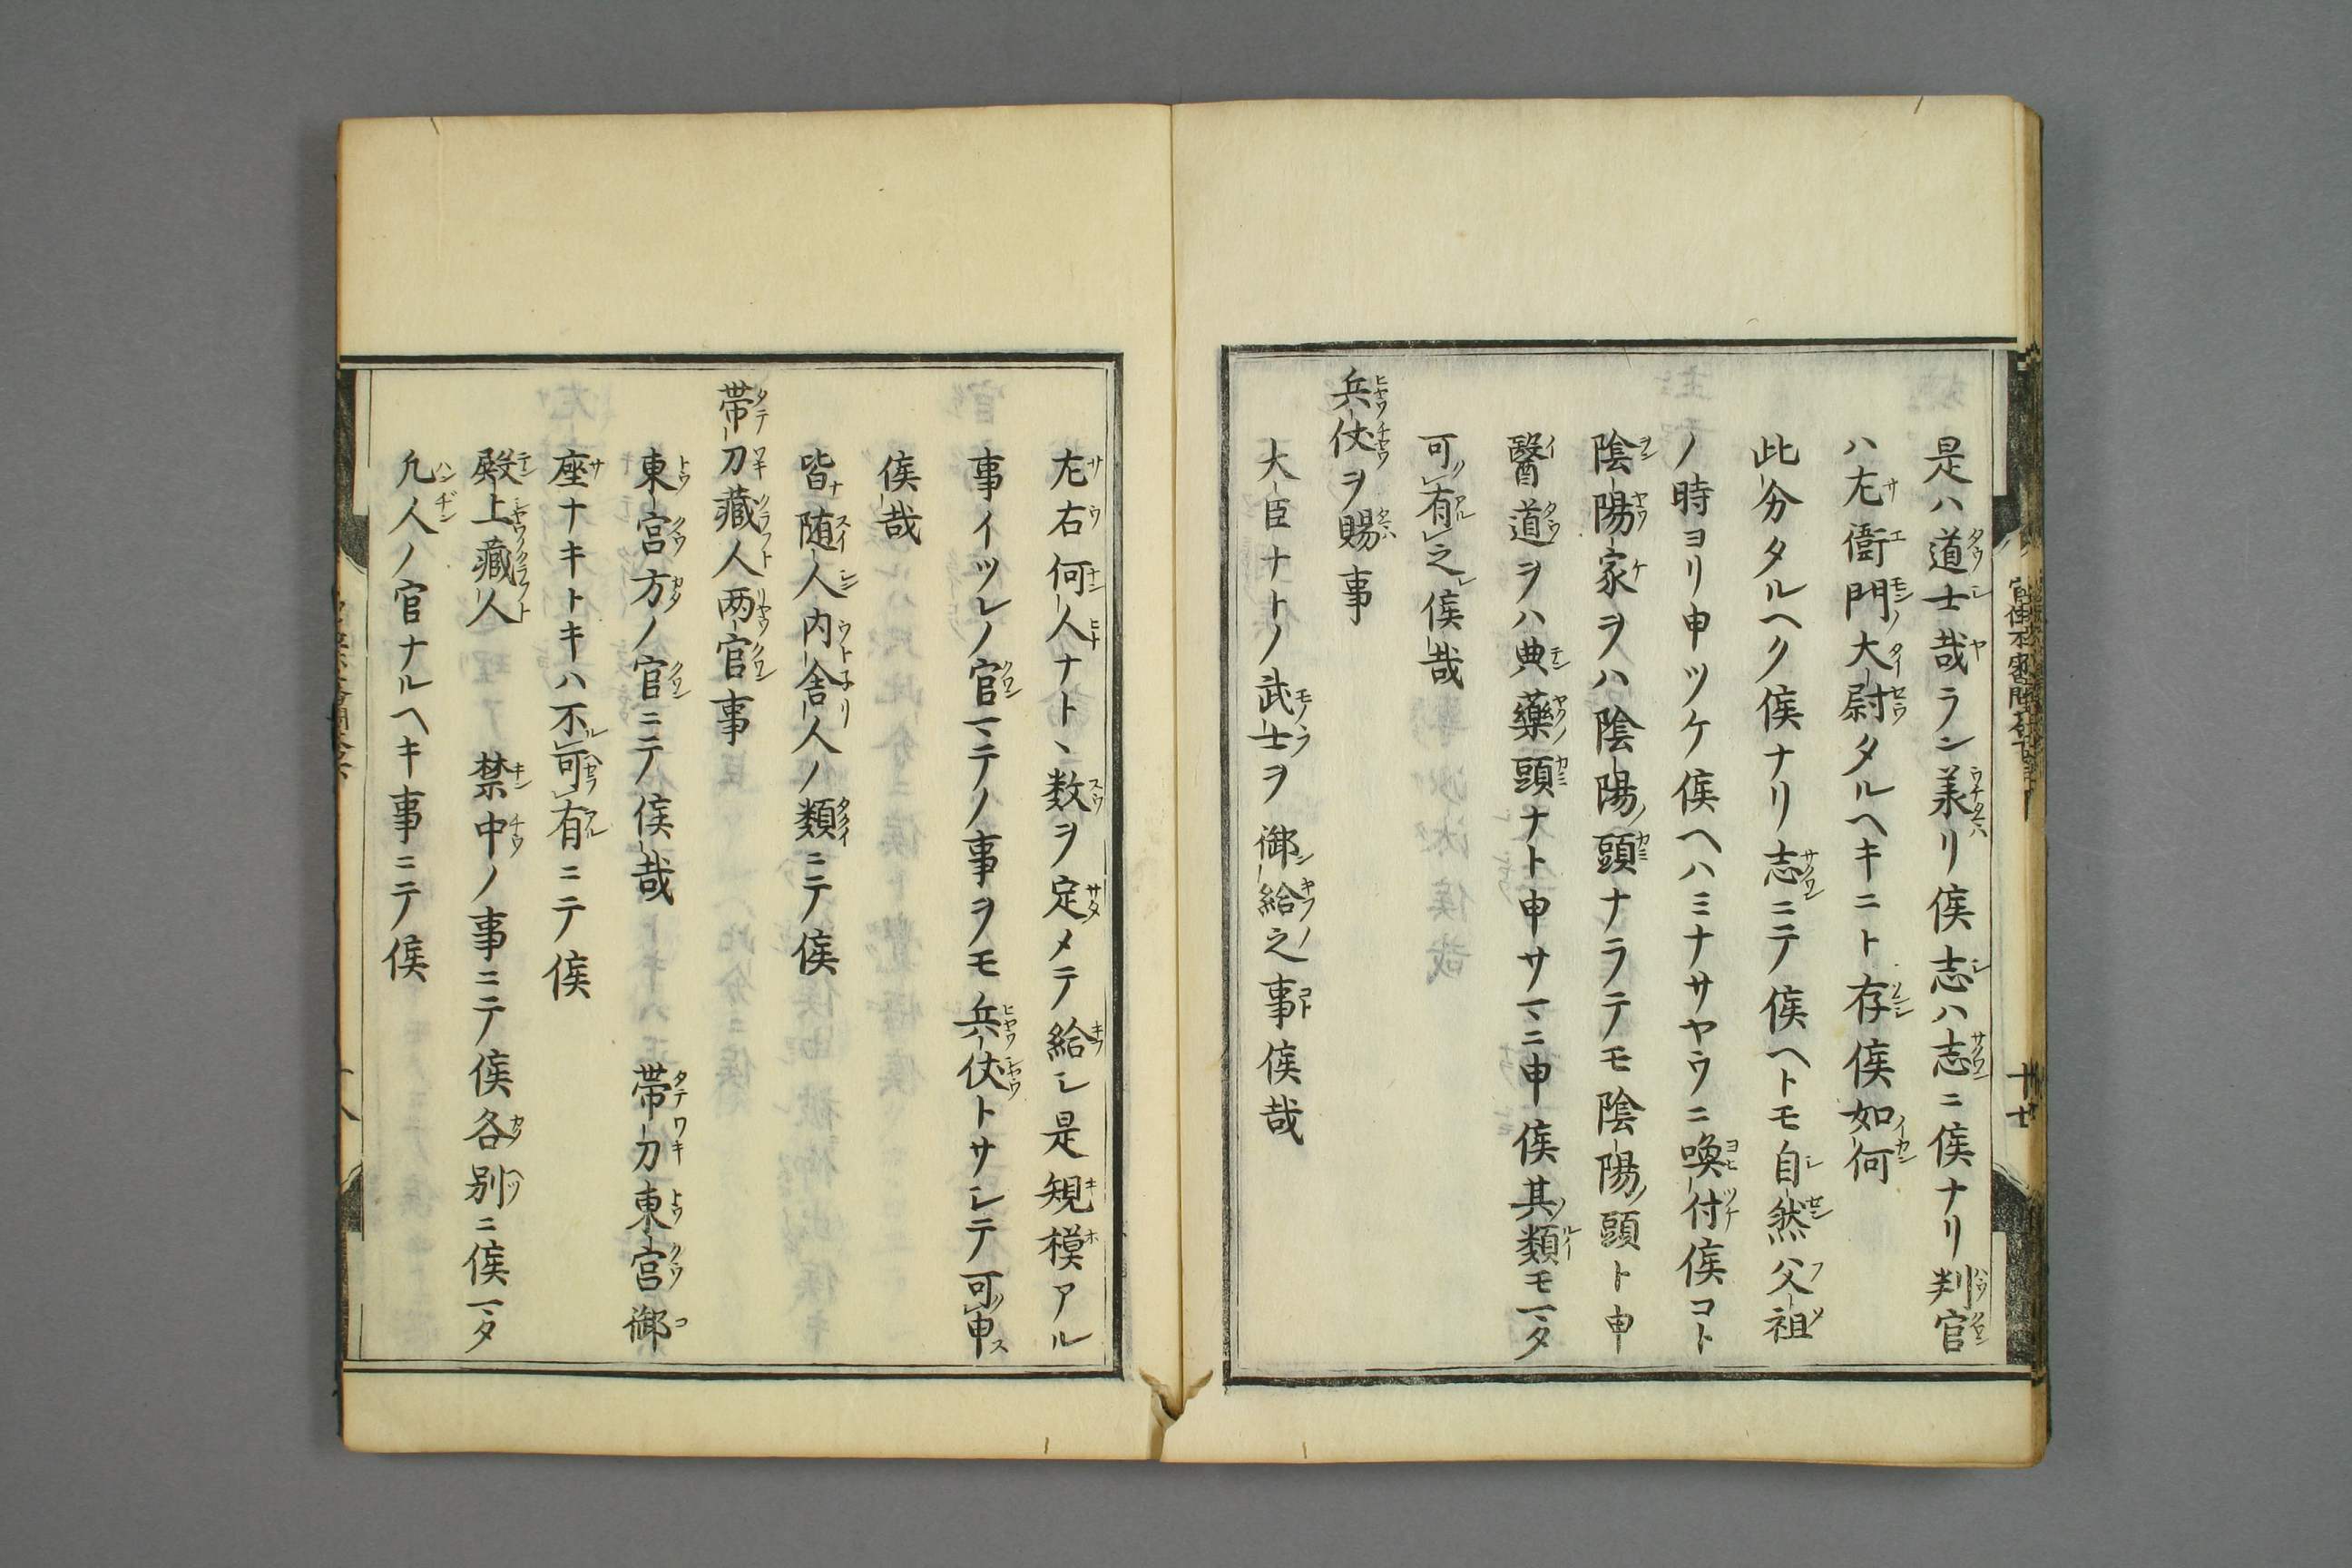 是ハ道士哉ラン美リ侯志ハ志ニ侯ナリ判官
ハ左衞門大尉タルヘキニト存侯如何
此分タルヘク侯ナリ志ニテ侯ヘトモ自然父祖
ノ時ヨリ申ツケ侯ヘハミナサヤウニ喚付侯コト
陰陽家ヲハ陰陽頭ナラテモ陰陽頭ト申
醫道ヲハ典藥頭ナト申サマニ申侯其類モマタ
可有之侯哉
兵仗ヲ賜事
大臣ナトノ武士ヲ御給之事侯哉
左右何人ナトヽ数ヲ定メテ給シ是規模アル
事イツレノ官マテノ事ヲモ兵仗トサシテ可申
侯哉
皆随人内舎人ノ類ニテ侯
帯刀藏人两官事
東宮方ノ官ニテノ侯哉　帯刀東宮御
座ナキトキハ不可有ニテ侯
殿上藏人　禁中ノ事ニテ侯各別ニ侯マタ
凢人ノ官ナルヘキ事ニテ侯